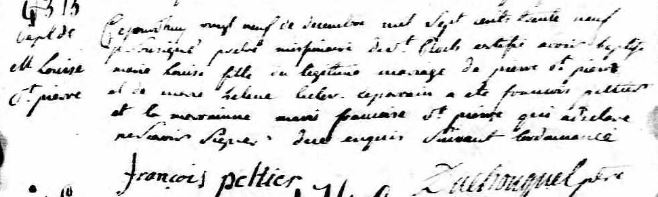 Bapt de
M Louise
St pierre
Cejourdhuy vingt neuf de decembre mil Sept cents trente neuf
je soussigné pretre missionaire de St certifie avoir baptisé
marie Louise fille du legitime mariage de pierre St pierre
et de marie helene le parain a eté francois peltier
et la marrainne marie francoise St pierre qui a declaré
ne scavoir Signer de ce enquis Suivant Lordonnance
françois peltier
ptre